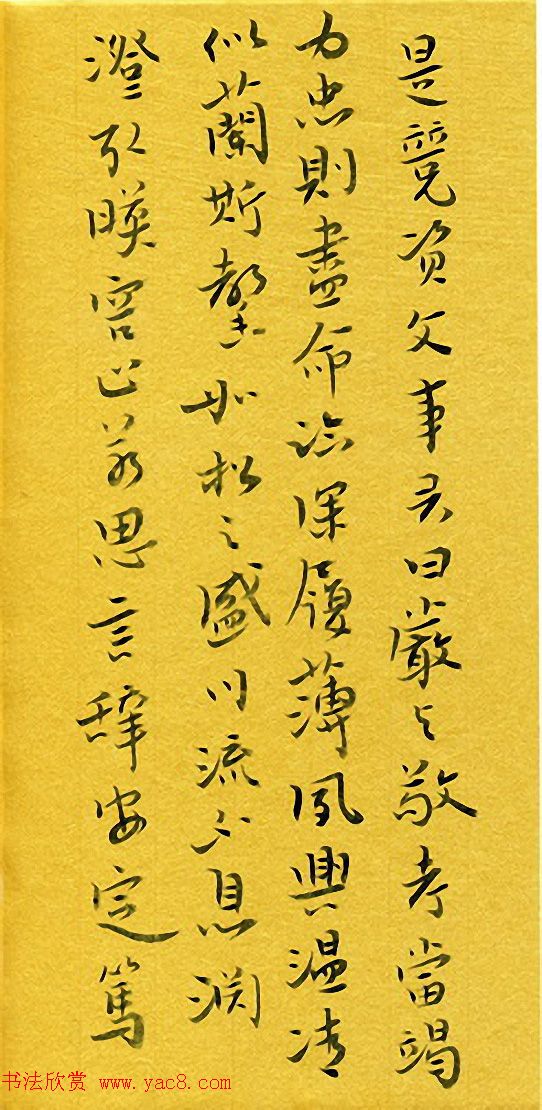 是競资父事君曰嚴与敬孝當竭
力忠則盡命临深履薄夙興温凊
似蘭斯馨如松之盛川流不息渊
澄取暎容止若思言辞安定篤
书法欣赏 www.yac8.com